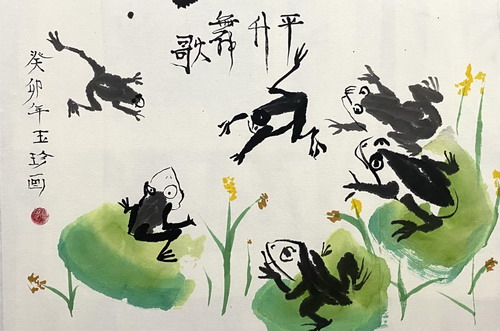 歌舞升平
癸卯年玉珍画